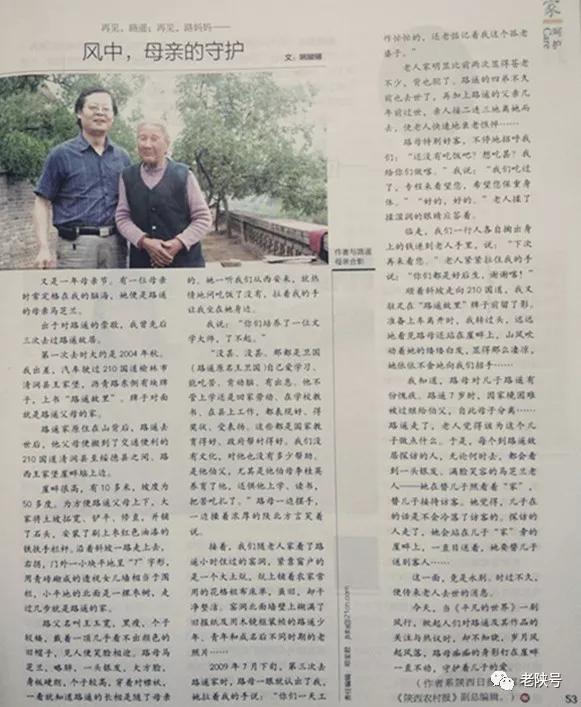 家
呵护
Care
再见，路遥；再见，路妈妈——
风中，母亲的守护
作者与路遥
母亲合影
又是一年母亲节。有一位母亲
时常定格在我的脑海，她便是路遥
的母亲马芝兰。
出于对路遥的崇敬，我曾先后
三次去过路遥故居。
第一次去时大约是2004年秋。
我出差，汽车驶过210国道榆林市
清涧县王家堡，沥青路东侧有块牌
子，上书“路遥故里”。牌子对面
就是路遥父母的家。
路遥家原住在山背后，路遥去
世后，他父母便搬到了交通便利的
210国道清涧县至绥德县之间、路
西王家堡崖畔塄上边。
崖畔很高，有10多米，坡度为
50多度。为方便路遥父母上下，大
家将土坡拓宽、铲平、修直，并铺
了石头，安装了刷上枣红色油漆的
铁扶手栏杆。沿着斜坡一路走上去，
右拐，门外一小块平地里“7”字形，
用青砖砌成的透视女儿墙相当于围
栏，小平地的北面是一棵枣树，走
过几步就是路遥的家。
路父名叫王玉宽，黑瘦，个子
较矮，戴着一顶几乎看不出颜色的
旧帽子，见人便笑脸相迎。路母马
芝兰，略胖，一头银发，大方脸，
身板硬朗，个子较高，穿着对襟袄，
一看就知道路遥的长相是随了母亲
的。她一听我们从西安来，就热
情地问吃饭了没有，拉着我的手
让我坐在她身边。
我说：“你们培养了一位文
学大师，了不起。”
“没甚，没甚。那都是卫国
（路遥原名王卫国）自己爱学习、
能吃苦、肯动脑、有出息。他不
管上学还是回家劳动、在学校教
书、在县上工作，都表现好、得
奖状、受表扬。这些都是国家教
育得好、政府帮衬得好。我们没
有文化，对他也没有多少帮助。
是他伯父，尤其是他伯母李桂英
养育了他，还供他上学、读书，
把苦吃扎了。”路母一边摆手，
一边操着浓厚的陕北方言笑着
说。
接着，我们随老人家看了路
遥小时住过的窑洞，紧靠窗户的
是一个大土炕，炕上铺着农家常
用的花格粗布床单，虽旧，却干
净整洁。窑洞北面墙壁上糊满了
旧报纸及用木镜框装裱的路遥少
年、青年和成名后不同时期的老
照片……
2009年7月下旬，第三次去
路遥家时，路母一眼就认出了我，
她拉着我的手说：“你们一天工
作忙忙的，还老惦记着我这个孤老
婆子。”
老人家明显比前两次显得苍老
不少，背也驼了。路遥的四弟不久
前也去世了，再加上路遥的父亲几
年前过世，亲人接二连三地离她而
去，使老人快速地衰老憔悴……
路母特别好客，不停地招呼我
们：“还没有吃饭吧？想吃甚？我
给你们做嘛。”我说：“我们吃过
了，专程来看望您，希望您保重身
体。”“好的，好的。”老人揉了
揉湿润的眼睛应答着。
临走，我们一行人各自掏出身
上的钱递到老人手里，说：“下次
再来看您。”老人紧紧拉住我的手
说：“你们都是好后生，谢谢嘞！”
顺着斜坡走向210国道，我又
驻足在“路遥故里”牌子前留了影。
准备上车离开时，我转过头，远远
地看见路母还站在崖畔上，山风吹
动着她的绺绺白发，显得那么凄凉，
她依依不舍地向我们招手……
我知道，路母对儿子路遥有
份愧疚。路遥7岁时，因家境困难
被过继给伯父，自此母子分离……
路遥走了，老人觉得该为这个儿
子做点什么。于是，每个到路遥故
居探访的人，无论何时去，都会看
到一头银发、满脸笑容的马芝兰老
人——她在替儿子照看着“家”，
替儿子接待访客。她觉得，儿子在
的话是不会冷落了访客的。探访的
人走了，她会站在儿子“家”旁的
崖畔上，一直目送着，她要替儿子
送别客人……
这一面，竟是永别。时过不久，
便传来老人去世的消息。
今天，当《平凡的世界》一剧
风行，掀起人们对路遥及其作品的
关注与热议时，却不知晓，岁月风
起风落，路母孤孤的身影钉在崖畔
一直不动，守护着儿子的爱。
（作者系陕西日报社
《陕西农村报》副总编辑。）
老陕号
53